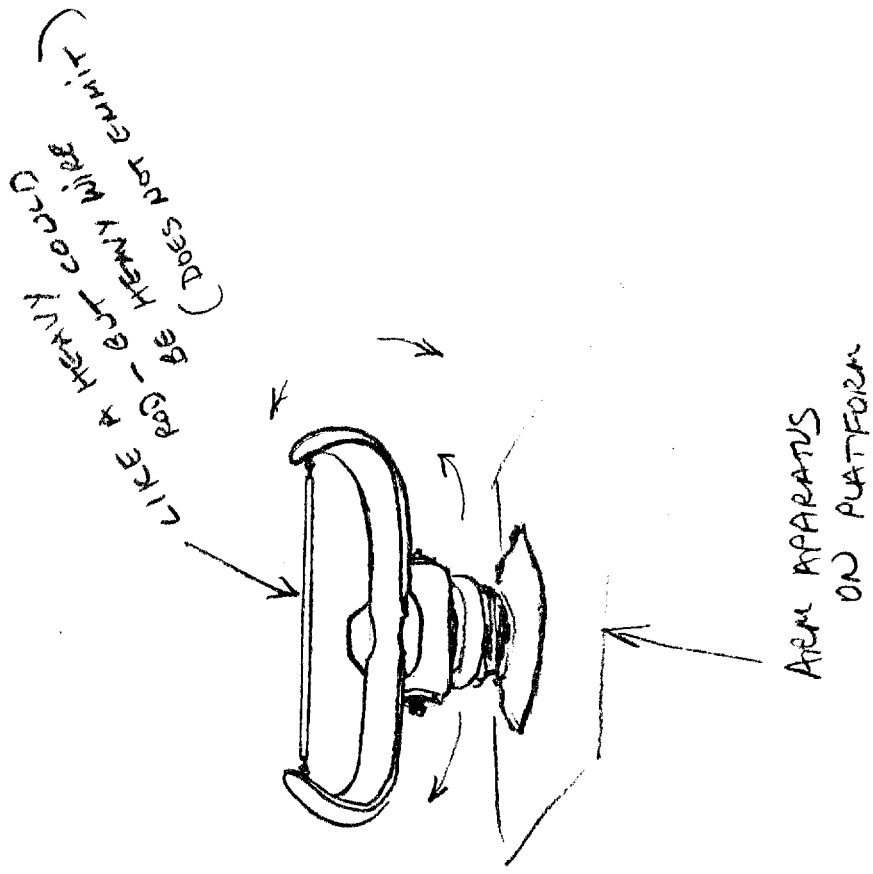 LIKE A HEAVY
ROD - BUT COULD
BE HEAVY WIRE
(DOES NOT EMMIT)
ARM APARATUS
ON PLATFORM